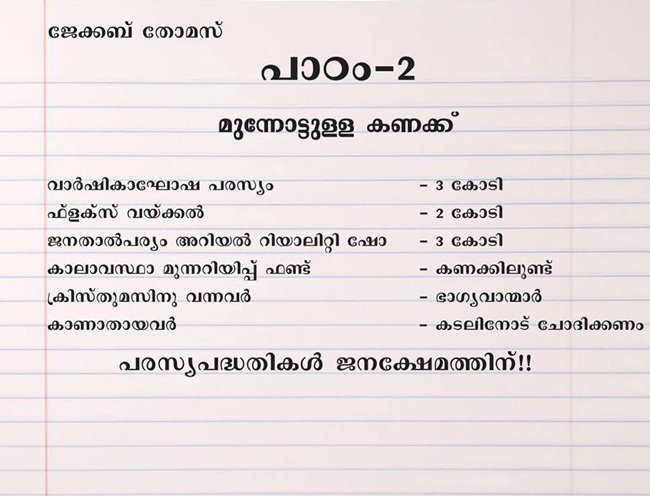 ജേക്കബ് തോമസ്
പാഠം-2
മുന്നോട്ടുളള കണക്ക്
വാർഷികാഘോഷ പരസ്യം - 3 കോടി
ഫ്ളക്സ് വയ്ക്കൽ - 2 കോടി
ജനതാൽപര്യം അറിയൽ റിയാലിറ്റി ഷോ - 3 കോടി
കാലാവസ്ഥാ മുന്നറിയിപ്പ് ഫണ്ട് - കണക്കിലുണ്ട്
ക്രിസ്തുമസിനു വന്നവർ - ഭാഗ്യവാന്മാർ
കാണാതായവർ - കടലിനോട് ചോദിക്കണം
പരസ്യപദ്ധതികൾ ജനക്ഷേമത്തിന്!!